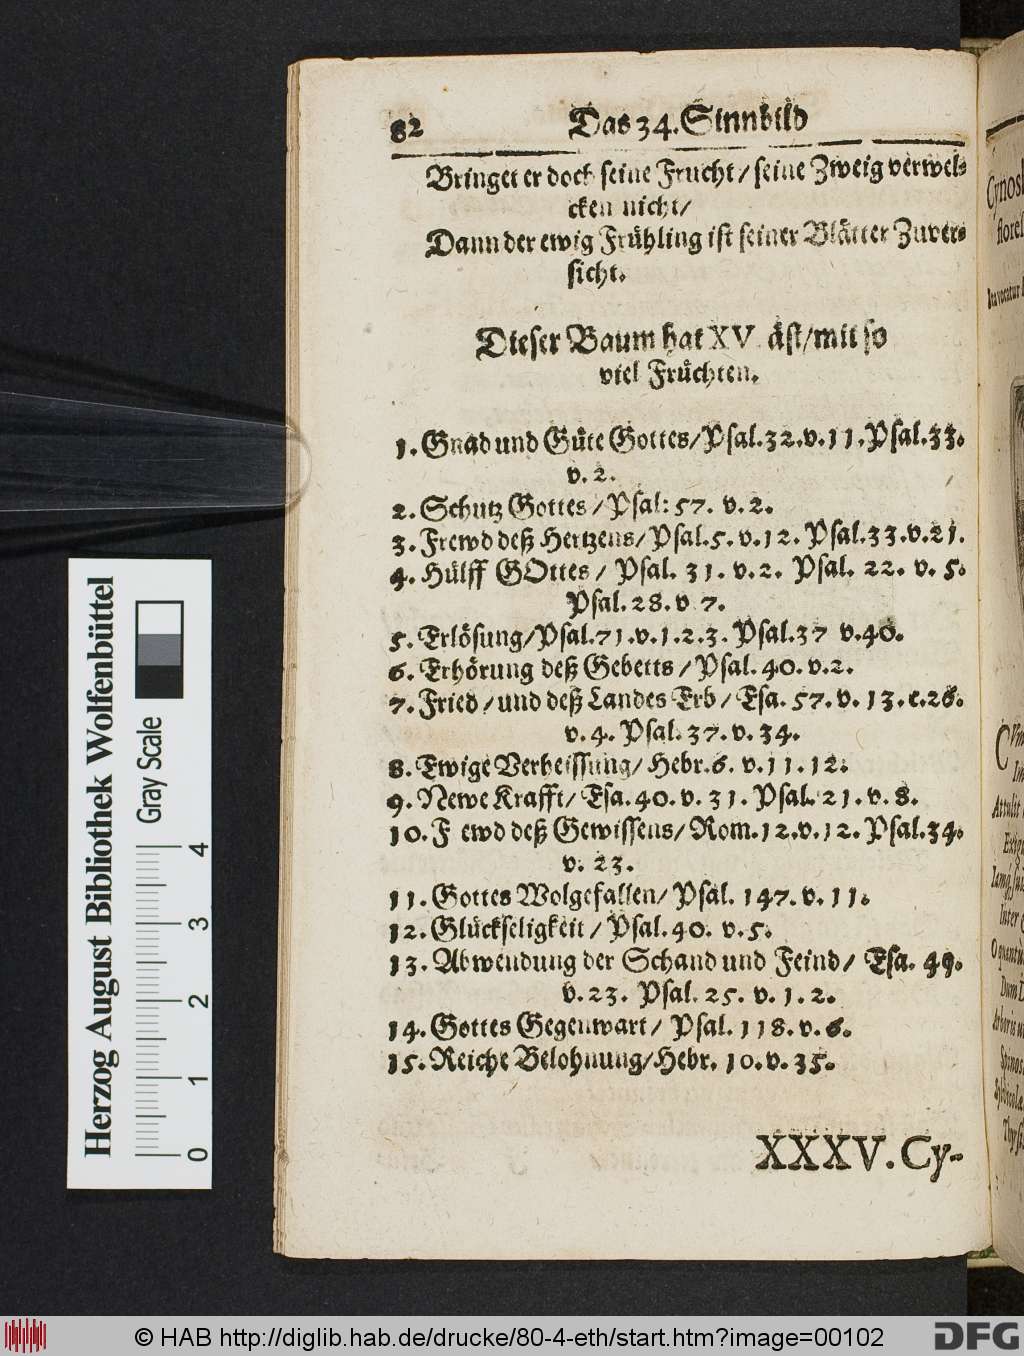 82 Das 34. Sinnbild
Bringet er doch seine Frucht / seine Zweig verwel-
cken nicht /
Dann der ewig Frühling ist seiner Blätter Zuver-
sicht.
Dieser Baum hat XV. äst / mit so
viel Früchten.
1. Gnad und Güte Gottes / Psal. 32. v. 11. Psal. 33.
v. 2.
2. Schutz Gottes / Psal: 57. v. 2.
3. Frewd deß Hertzens / Psal. 5. v. 12. Psal. 33. v. 21.
4. Hülff GOttes / Psal. 31. v. 2. Psal. 22. v. 5.
Psal. 28. v 7.
5. Erlösung / Psal. 71. v. 1. 2. 3. Psal. 37 v. 40.
6. Erhörung deß Gebetts / Psal. 40. v. 2.
7. Fried / und deß Landes Erb / Esa. 57. v. 13. c. 26.
v. 4. Psal. 37. v. 34.
8. Ewige Verheissung / Hebr. 6. v. 11. 12.
9. Newe Krafft / Esa. 40. v. 31. Psal. 21. v. 8.
10. F ewd deß Gewissens / Rom. 12. v. 12. Psal. 34.
v. 23.
11. Gottes Wolgefallen / Psal. 147. v. 11.
12. Glückseligkeit / Psal. 40. v. 5.
13. Abwendung der Schand und Feind / Esa. 49.
v. 23. Psal. 25. v. 1. 2.
14. Gottes Gegenwart / Psal. 118. v. 6.
15. Reiche Belohnung / Hebr. 10. v. 35.
XXXV. Cy-
Herzog August Bibliothek Wolfenbüttel
Gray Scale
0 1 2 3 4
© HAB http://diglib.hab.de/drucke/80-4-eth/start.htm?image=00102
DFG